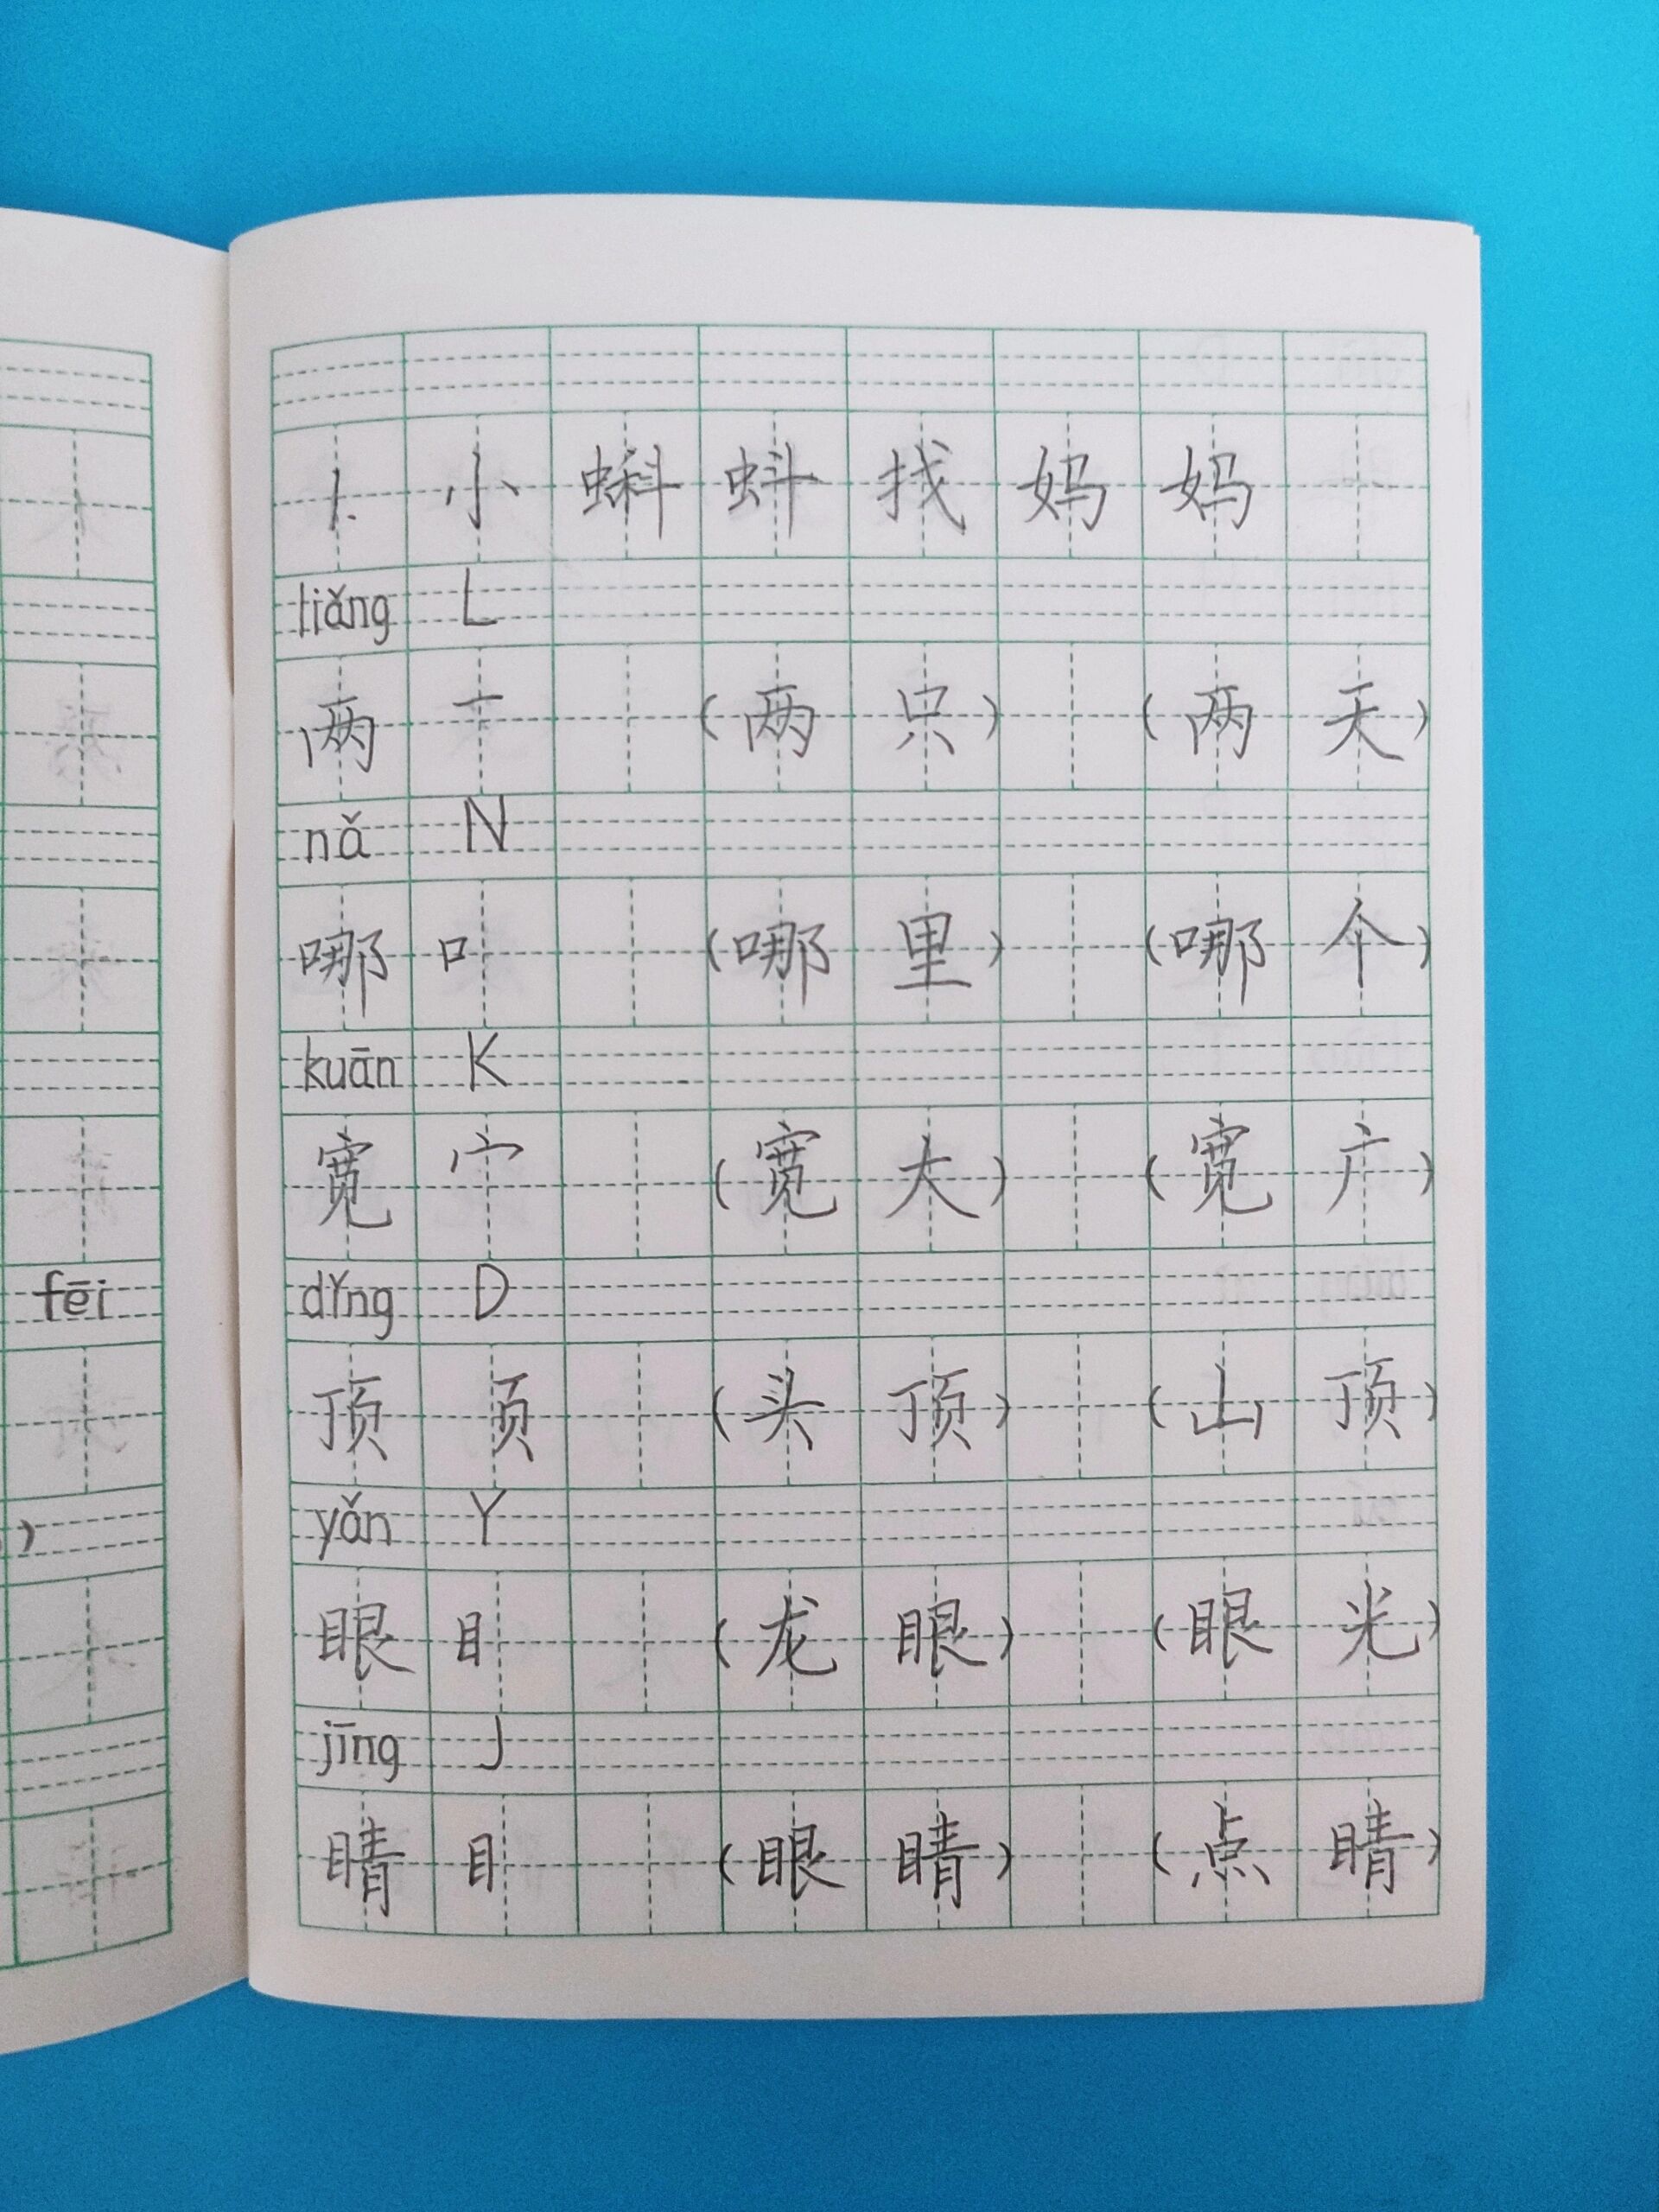 1. 小蝌蚪找妈妈
liǎng L
两 一 (两只) (两天)
nǎ N
哪 口 (哪里) (哪个)
kuān K
宽 宀 (宽大) (宽广)
fēi
dǐng D
顶 页 (头顶) (山顶)
)
yǎn Y
眼 目 (龙眼) (眼光)
jīng J
睛 目 (眼睛) (点睛)